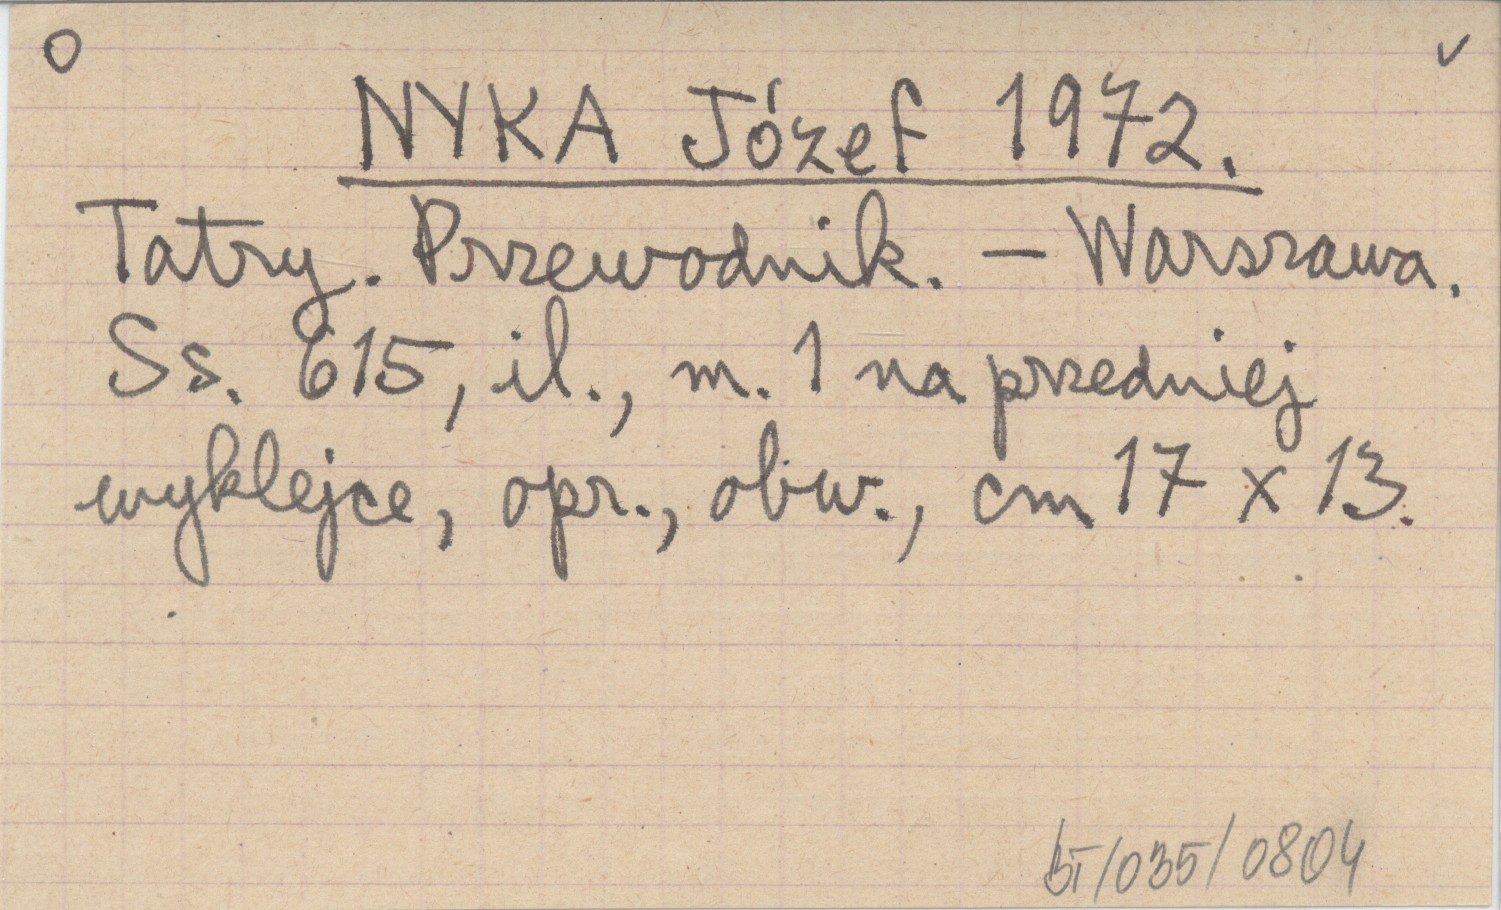 O ✓
NYKA Józef 1972.
Tatry. Przewodnik. – Warszawa.
Ss. 615, il., m. 1 na przedniej
wyklejce, opr., obw., cm 17 x 13.
BT/035/0804